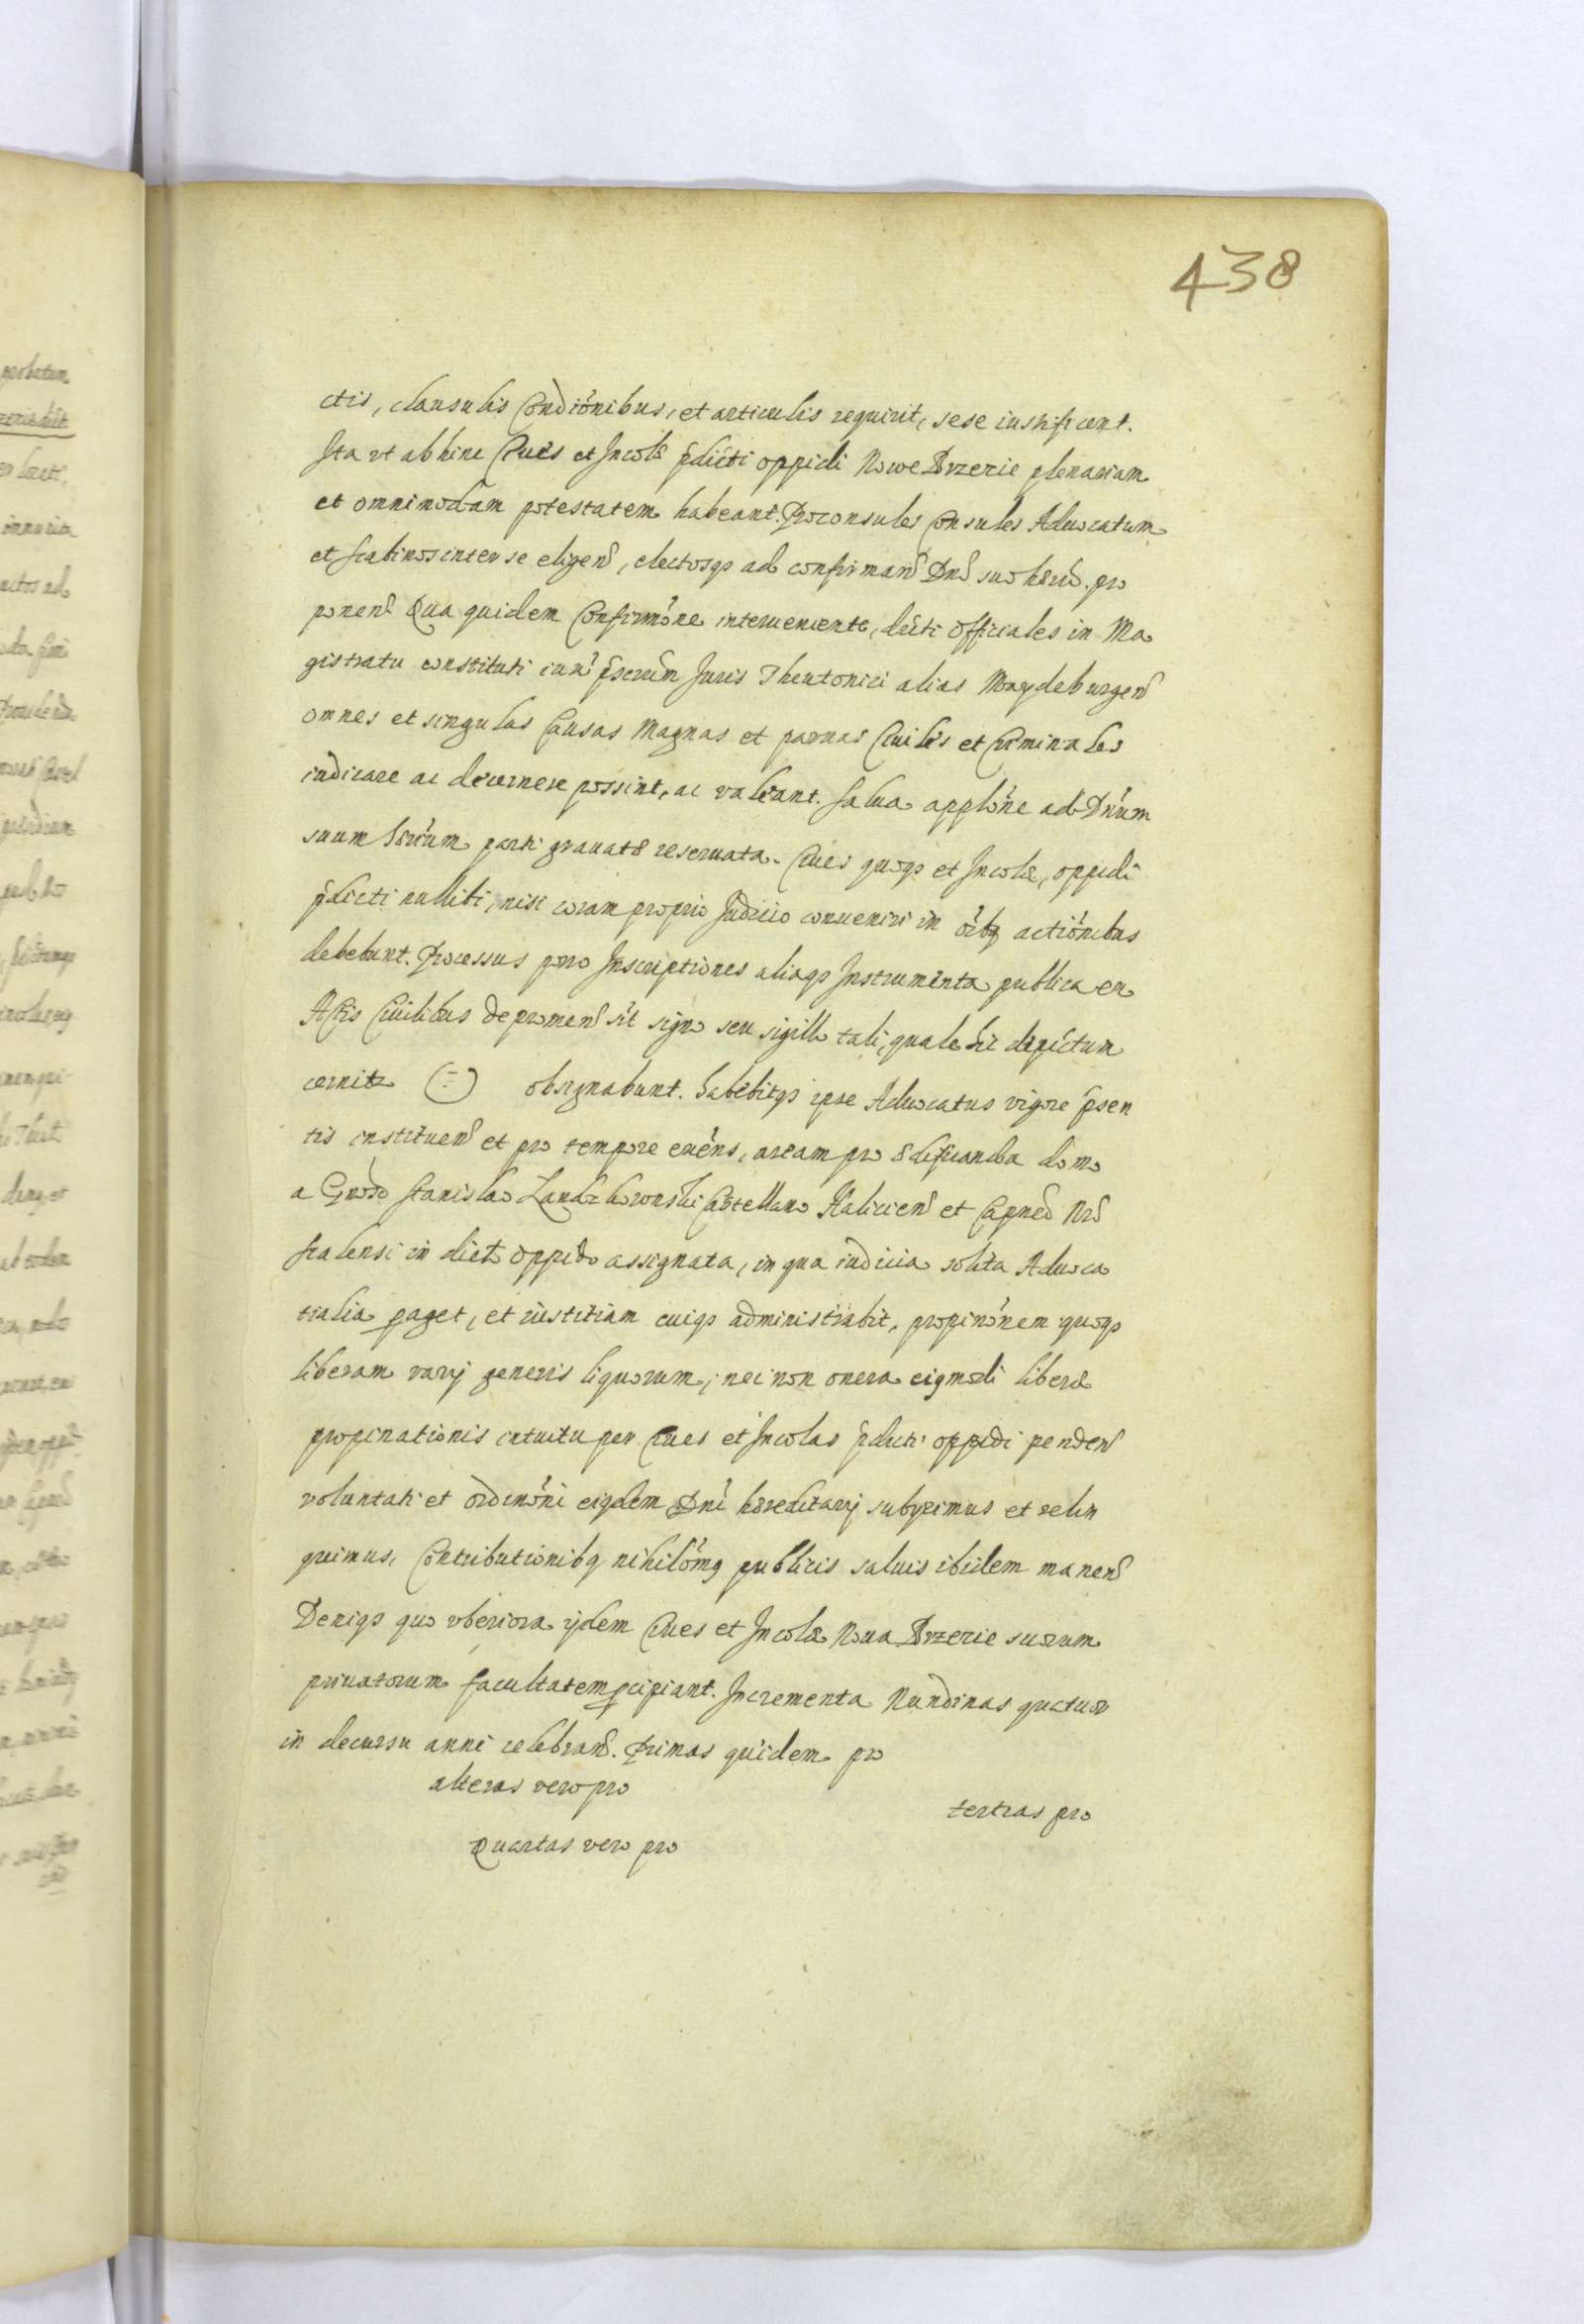 438
ctis, clausulis Condiõnibus, et articulis requirit, sese iustificent.
Ita vt abhinc Ciues et Incolæ pdicti oppidi Nowe Brzezie plenariam
et omnimodam potestatem habeant. Proconsules Consules Aduocatum
et Scabinos inter se eligen, electosqȝ ad confirman Dno suo hæred. pro
ponen Qua quidem Confirmõne interueniente, dicti Officiales in Ma
gistratu constituti iuxa pscrum Iuris Theutonici alias Maydeburgen
omnes et singulas Causas Magnas et paruas Ciuiles et Criminales
iudicare ac decernere possint, ac valeant. Salua applõne ad Dnum
suum hærium parti grauatæ reseruata. Ciues quoqȝ et Incolæ, oppidi
pdicti nullibi, nisi coram proprio Iudicio conueniri in oibȝ actiõnibus
debebunt. Processus porro Inscriptiones aliaqȝ Instrumenta publica ex
Actis Ciuilibus depromen sit signo seu sigillo tali, quale hic depictum
cernitr (=) obsignabunt. Habebitqȝ ipse Aduocatus vigore psen
tis instituen et pro tempore exens, aream pro ædificanda domo
a Gnoso Stanislao Landzkoronski Castellano Halicien et Capneo
scalensi in dicto oppido assignata, in qua iudicia solita Aduoca
tialia paget, et iustitiam cuiqȝ administrabit, propinõnem quoqȝ
liberam varij generis liquorum, nec non onera eiqmodi liberæ
propinationis intuitu per Ciues et Incolas pdicti oppidi penden
voluntati et ordinõni eiqdem Dni hæreditarij subijcimus et relin
quimus, Contributionibȝ nihilõmȝ publicis saluis ibidem manen
Deniqȝ quo vberiora ijdem Ciues et Incolæ Noua Brzezie suorum
priuatorum facultatem pcipiant. Incrementa Nundinas quatuor
in decursu anni celebran. Primas quidem pro
alteras vero pro
tertias pro
Quartas vero pro